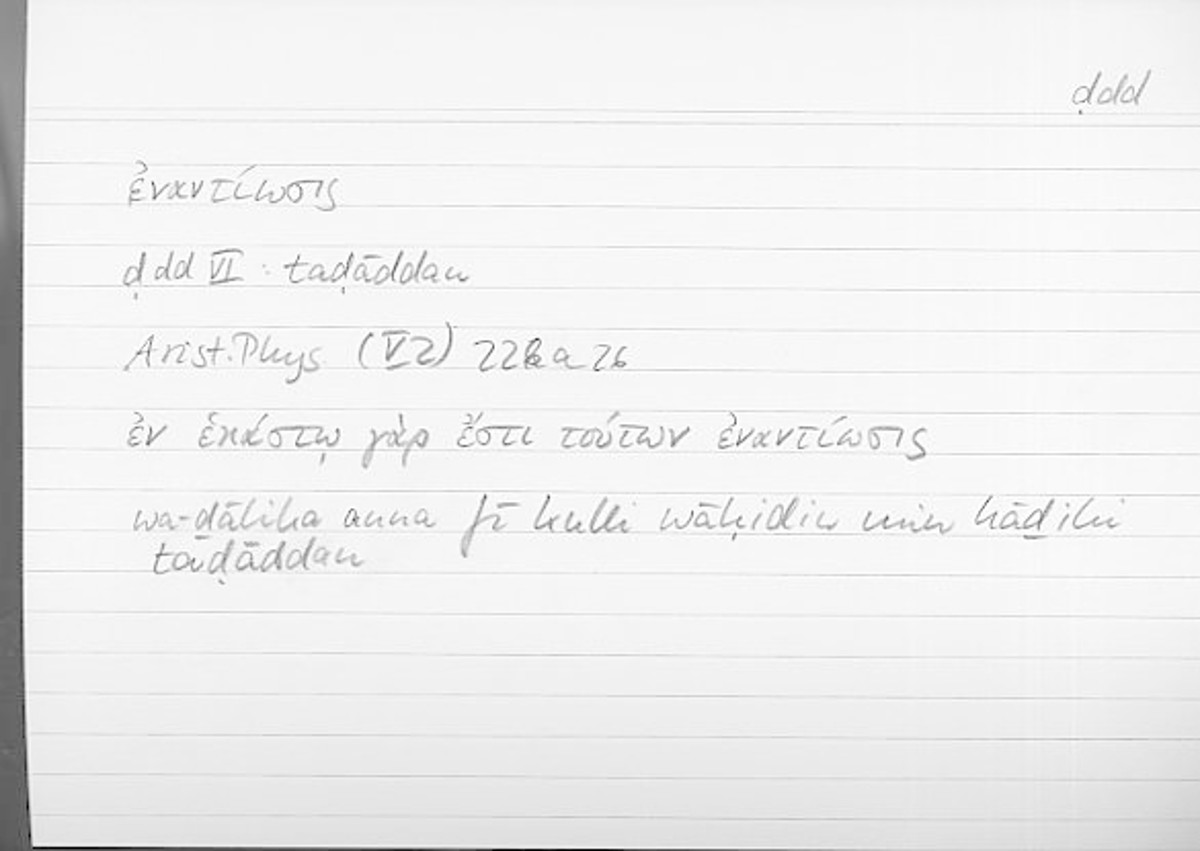 ḍdd
ἐναντίωσις
ḍdd VI : taḍāddan
Arist. Phys. (V2) 226 a 26
ἐν ἑκάστῳ γάρ ἔστι τούτων ἐναντίωσις
wa-ḏālika anna fī kulli wāḥidin min hāḏihi
taḍāddan